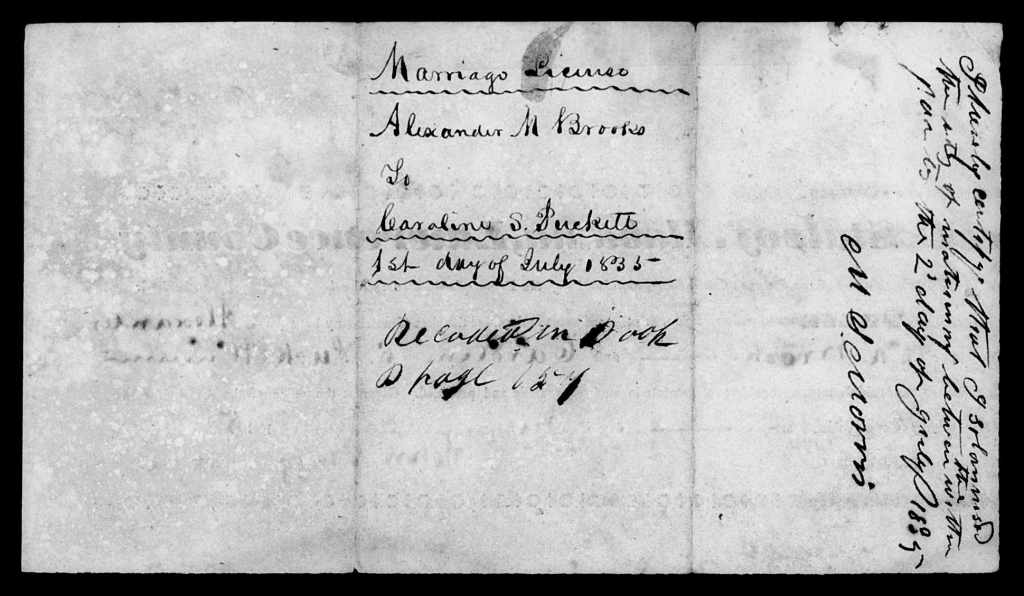 Marriage License
Alexander M Brooks
To
Caroline S. Puckett
1st day of July 1835
Recorded in Book
D page 154
I hereby certify that I solamnised
the rits of matrimony between the within
parties the 2d day of July 1835
Morris